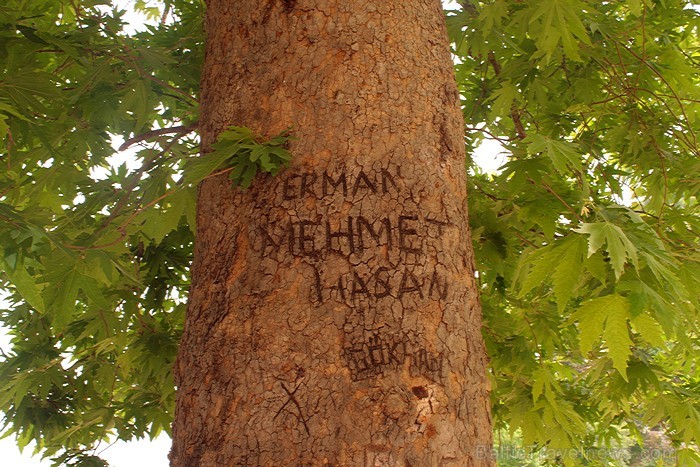 ERMAN
MEHMET
HASAN
GÖKHAN
X
BalticTravelnews.com